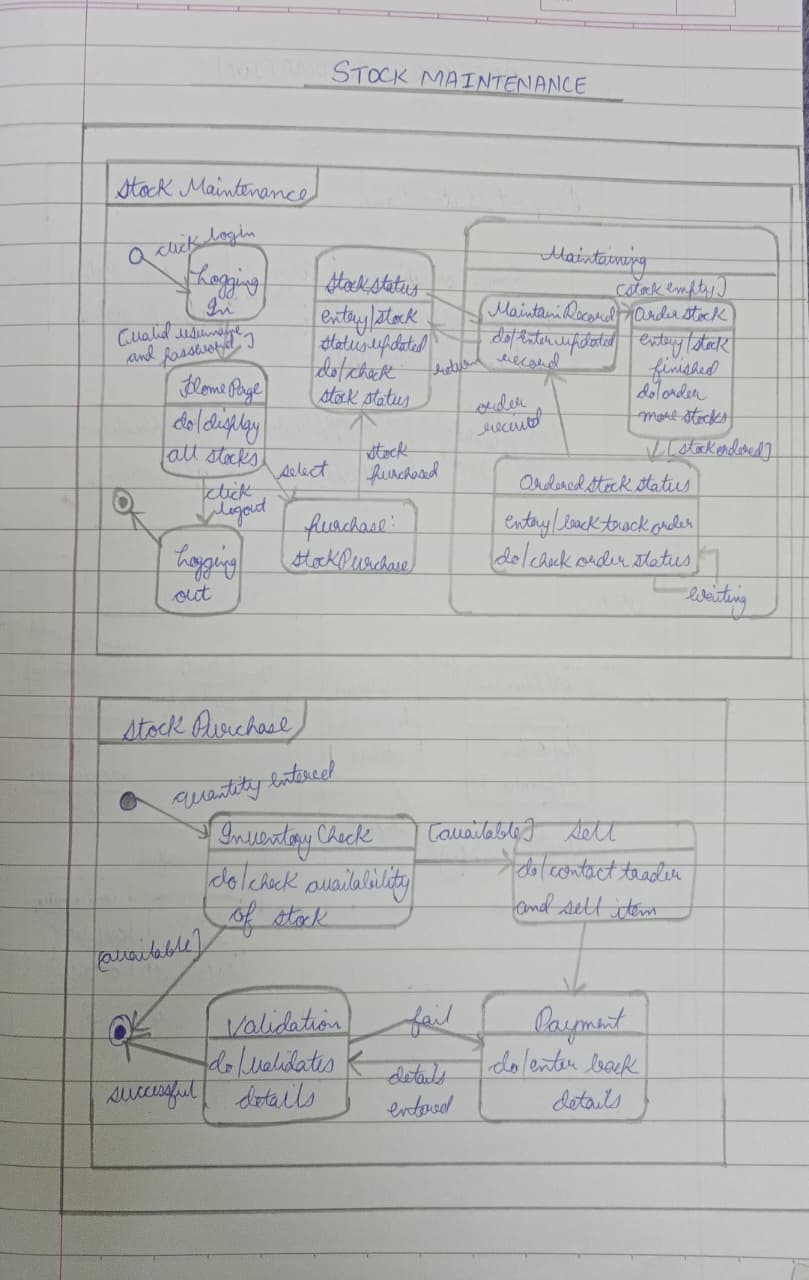 STOCK MAINTENANCE
Stock Maintenance
click login
Logging
In
[valid username
and password]
Home Page
do/display
all stocks
click
logout
Logging
out
select
Purchase:
Stock Purchase
stock
purchased
Stock status
entry/stock
status updated
do/check
stock status
Maintaining
[stock empty]
Maintain Record
do/enter updated
record
order
Order Stock
entry/stock
finished
do/order
more stocks
[stock ordered]
Ordered stock status
entry/back track order
do/check order status
Waiting
Stock Purchase
quantity entered
Inventory Check
do/check availability
of stock
[available]
Sell
do/contact traader
and sell item
[available]
Validation
do/validates
details
fail
details
entered
Payment
do/enter back
details
successful